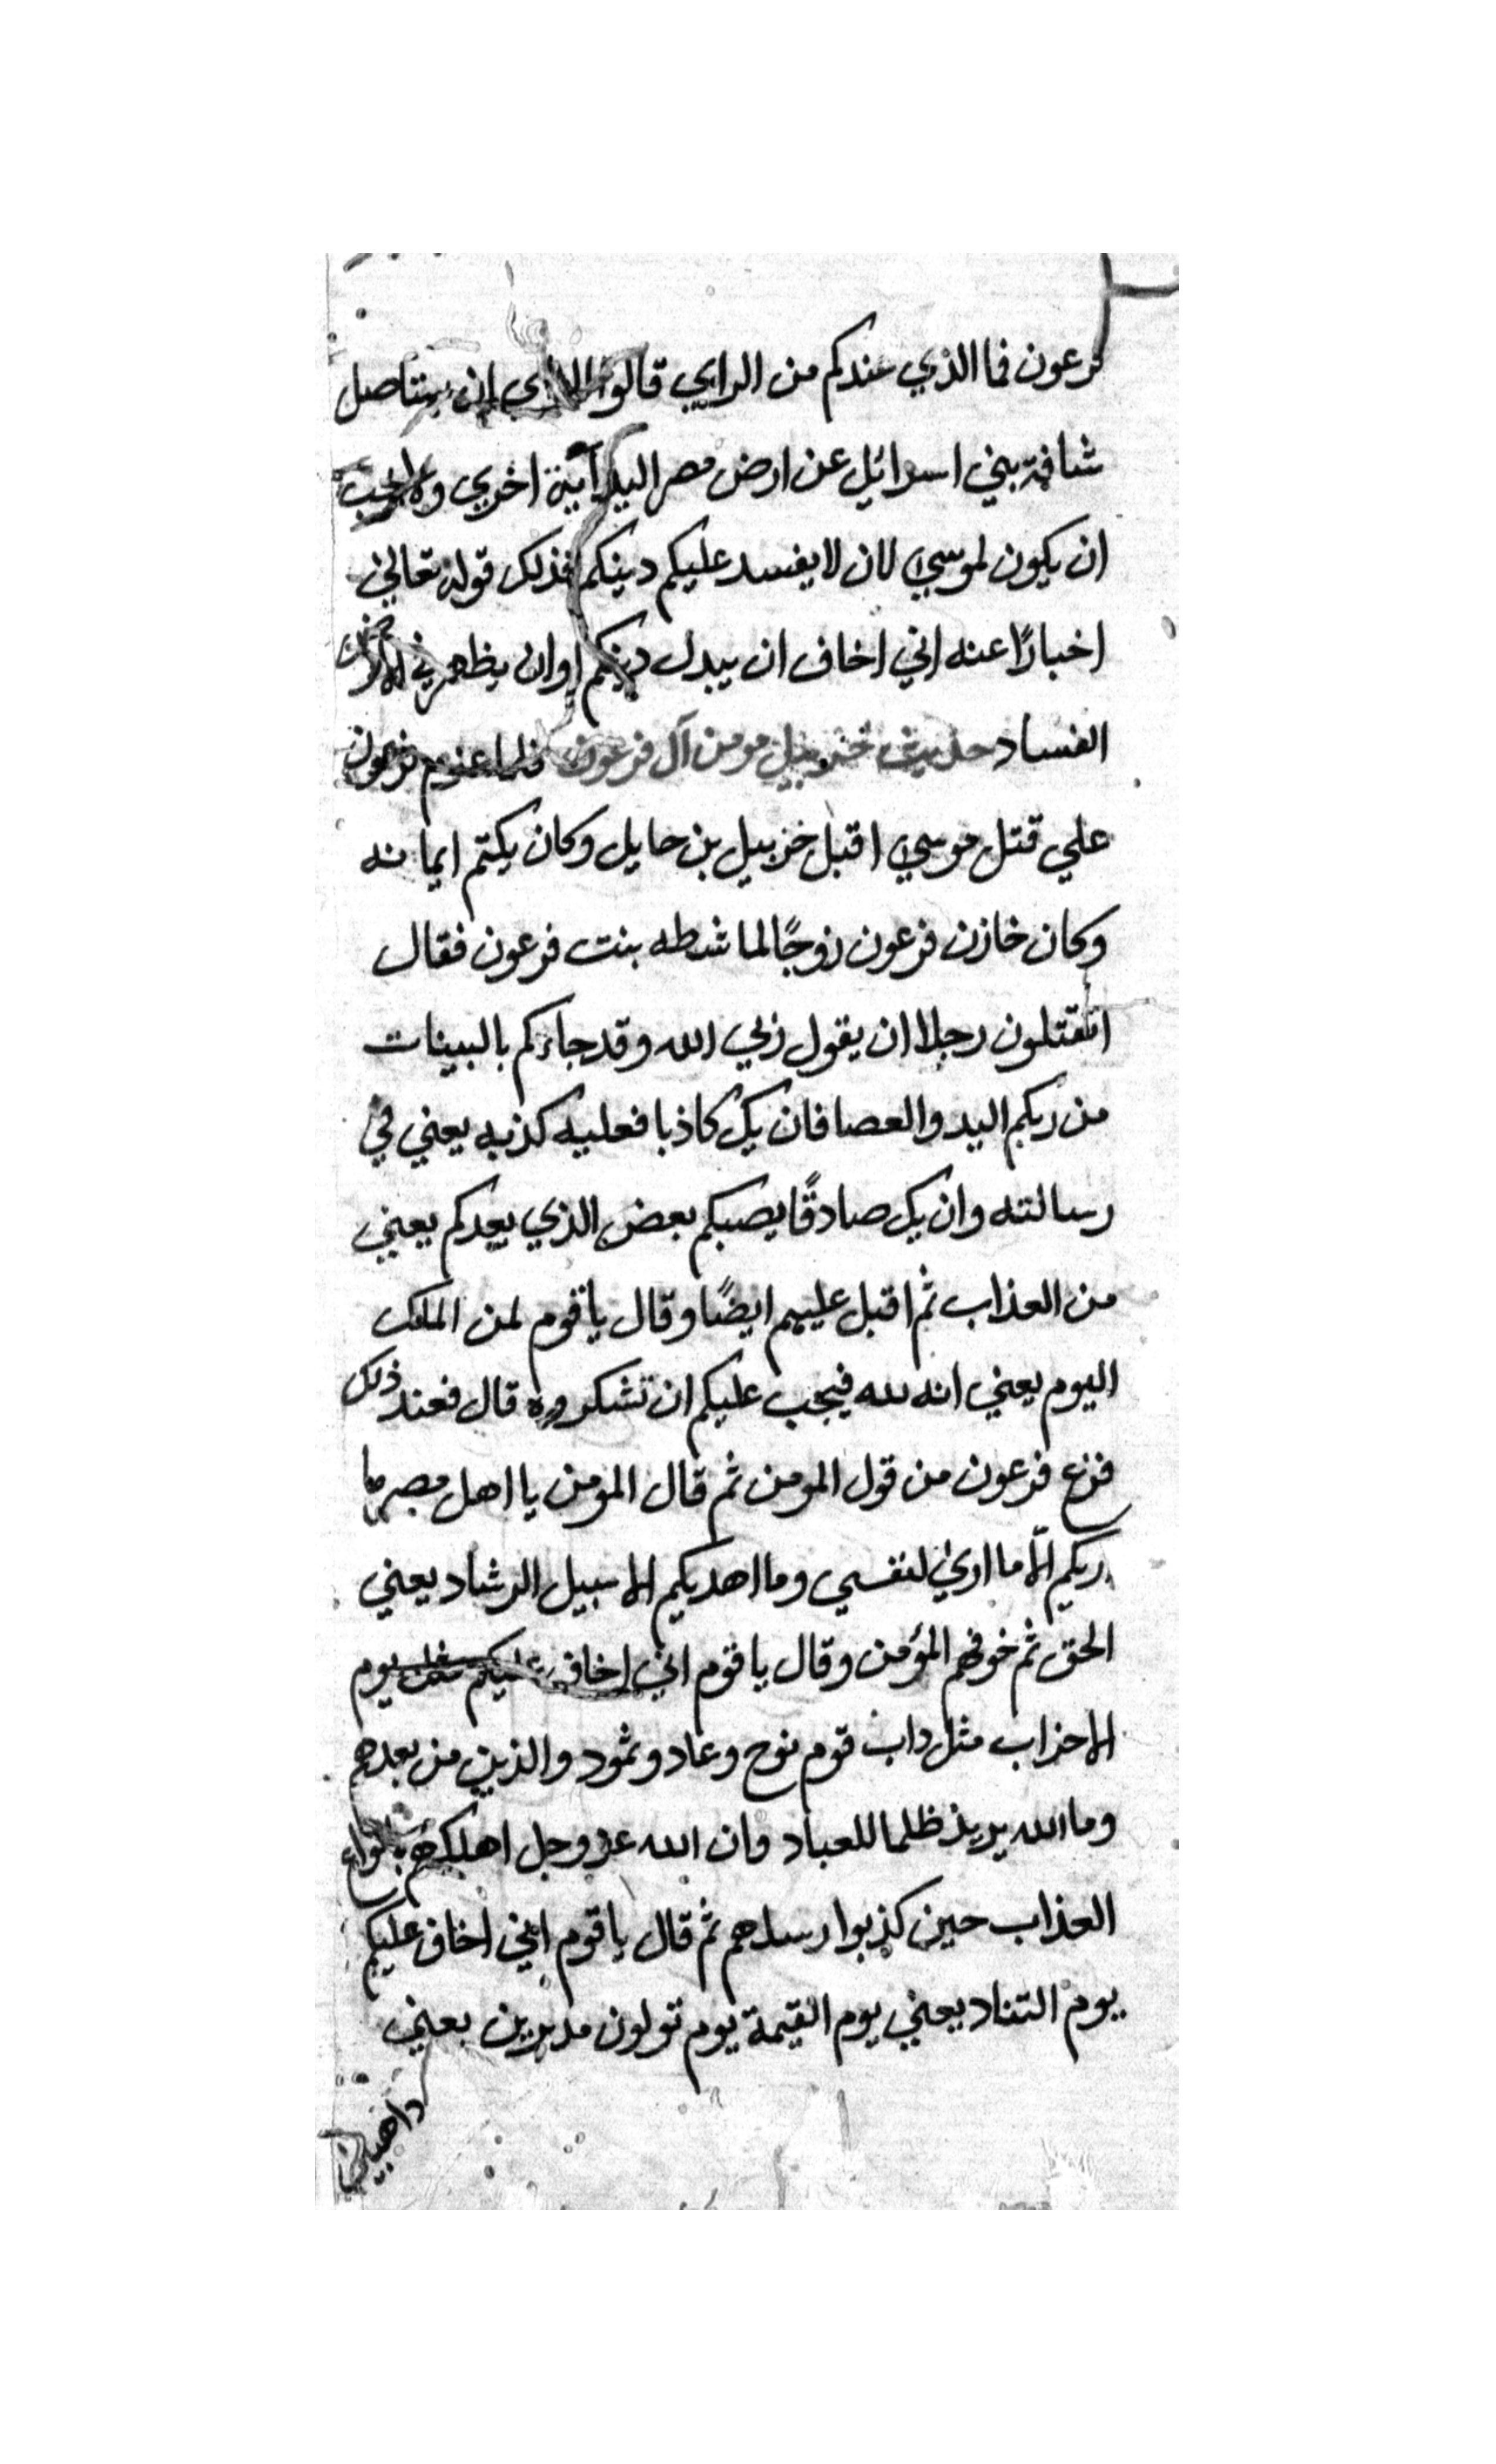 فرعون فما الذي عندكم من الراي قالوا الراي ان يستاصل
شافة بني اسرائيل عن ارض مصر اليك آية اخري
ان يكون لموسي لان لا يفسد عليكم دينكم فذلك قوله تعالي
اخبارًا عنه اني اخاف ان يبدل دينكم اوان يظهر في الارض
الفساد حديث خزبيل مومن آل فرعون فلما عزم فرعون
علي قتل موسي اقبل خزبيل بن حايل وكان يكتم ايمانه
وكان خازن فرعون زوجًا لماشطه بنت فرعون فقال
اتقتلون رجلا ان يقول ربي الله وقد جاءكم بالبينات
من ربكم اليد والعصا فان يك كاذبا فعليه كذبه يعني في
رسالته وان يك صادقًا يصبكم بعض الذي يعدكم يعني
من العذاب ثم اقبل عليهم ايضًا وقال يا قوم لمن الملك
اليوم يعني انه لله فيجب عليكم ان تشكروه قال فعند ذلك
فزع فرعون من قول المومن ثم قال المومن يا اهل مصر ما
اريكم الّا ما اري لنفسي وما اهديكم الا سبيل الرشاد يعني
الحق ثم خوفهم المؤمن وقال يا قوم اني اخاف عليكم مثل يوم
الاحزاب مثل داب قوم نوح وعاد وثمود والذين من بعدهم
وما الله يريد ظلما للعباد وان الله عز وجل اهلكهم بانواع
العذاب حين كذبوا رسلهم ثم قال يا قوم اني اخاف عليكم
يوم التناد يعني يوم القيمة يوم تولون مدبرين يعني
ذاهبين